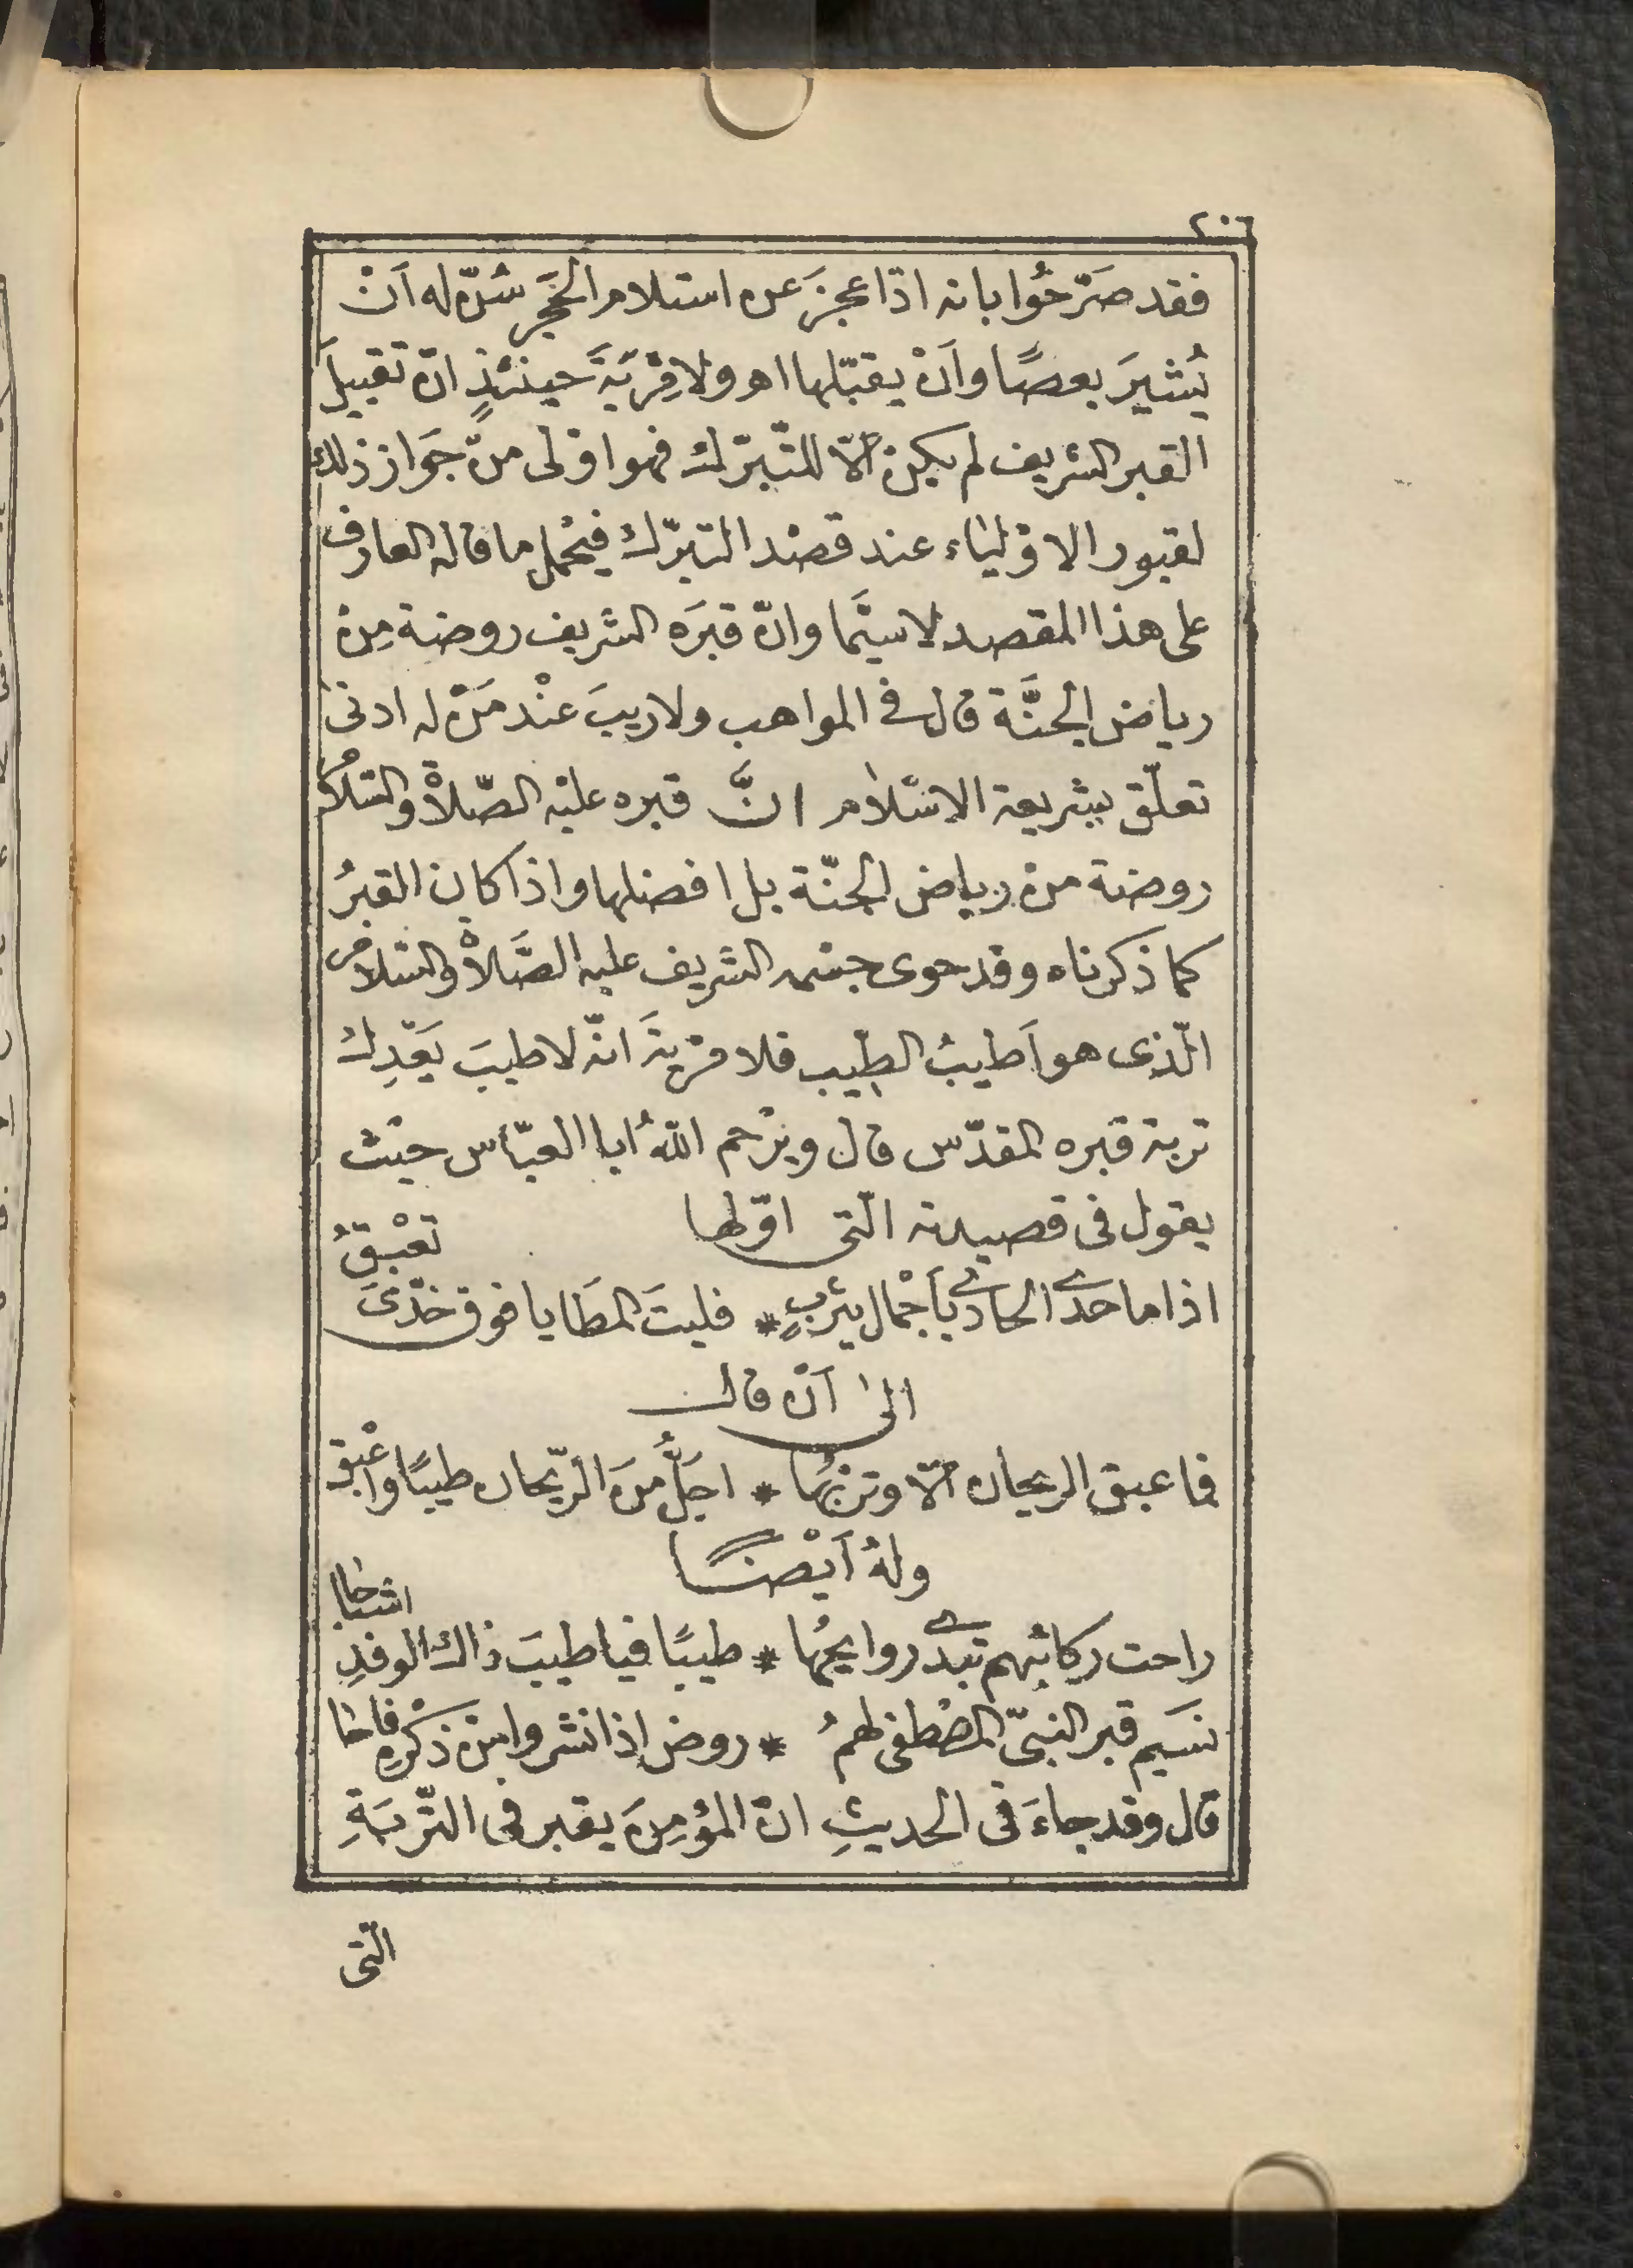 ٢٠٦
فقد صَرّحُوا بانه اذا عجزَ عن استلام الحَجَر سُنّ له اَنْ
يُشيرَ بعصًا واَنْ يقبّلها اهـ ولا مِرْيَةَ حينئذٍ انّ تقبيلَ
القبر الشريف لم يكن الّا للتّبرّك فهو اوْلى منْ جَواز ذلك
لقبور الاوْلياء عند قصْد التبرّك فيُحْمل ما قاله العارف
على هذا المقصد لاسيّما وانّ قبرَه الشريف روضة مِنْ
رياض الجنَّة قال في المواهب ولا ريبَ عنْد مَنْ له ادنى
تعلّق بشريعة الاسْلام انَّ قبره عليْه الصّلاةُ والسّلامُ
روضة منْ رياض الجنّة بل افضلها واذا كان القبرُ
كما ذكرناه وقد حوى جسْمه الشريف عليه الصَّلاةُ والسّلام
الّذى هو اَطيبُ الطِّيب فلا مرْيةَ انّه لا طيبَ يَعْدِل
تربة قبره المقدّس قال ويرْحم اللهُ ابا العبّاس حيْث
يقول فى قصيدته الّتى اوّلها
اذا ما حدى الحادى بأجْمال يثربٍ * فليتَ المطَايا فوق خدّىَ تعْبقُ
الىٰ اَنْ قال
فما عبق الريحان الّا وتربُها * اجَلُّ منَ الرّيحان طيبًا واعْبق
ولهُ اَيْضًا
راحت ركائبُهم تبدى روايحُها * طيبًا فيا طيبَ ذاك الوفدِ اشباحا
نسَيم قبر النبىّ المصْطفى لهمُ * روض إذا نشروا منْ ذكْرِه فاحا
قال وقد جاءَ فى الحديثِ انّ المؤمِنَ يقبر فى التّربَةِ
الّتى